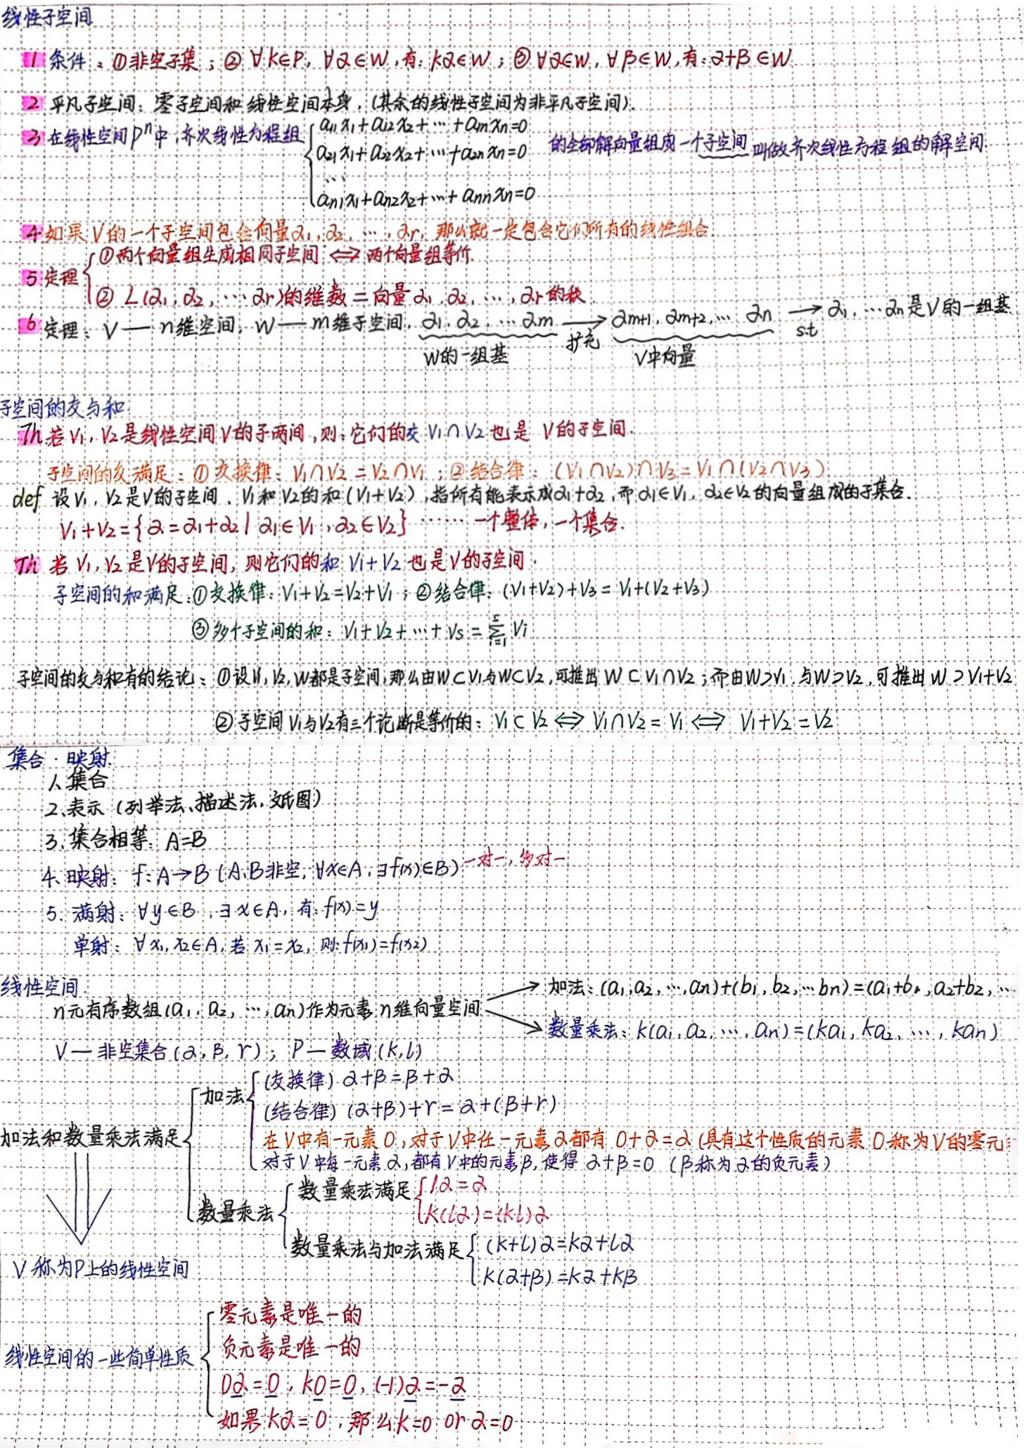 线性子空间
1 条件：①非空子集；②∀k∈P，∀α∈W，有：kα∈W；③∀α∈W，∀β∈W，有：α+β∈W
2 平凡子空间：零子空间和线性空间本身，(其余的线性子空间为非平凡子空间).
3 在线性空间Pⁿ中，齐次线性方程组 { a₁₁x₁+a₁₂x₂+⋯+a₁ₙxₙ=0 的全部解向量组成一个子空间 叫做齐次线性方程组的解空间.
a₂₁x₁+a₂₂x₂+⋯+a₂ₙxₙ=0
⋯
aₙ₁x₁+aₙ₂x₂+⋯+aₙₙxₙ=0
4 如果V的一个子空间包含向量α₁,α₂,⋯,αr，那么就一定包含它们所有的线性组合
5 定理 { ①两个向量组生成相同子空间 ⟺ 两个向量组等价
② L(α₁,α₂,⋯αr)的维数=向量α₁,α₂,⋯,αr的秩
6 定理：V — n维空间，W — m维子空间，α₁,α₂,⋯αm → αm+1,αm+2,⋯ αn → α₁,⋯αn是V的一组基
W的一组基 扩充 V中向量 s.t
子空间的交与和
Th 若V₁,V₂是线性空间V的子两间，则：它们的交V₁∩V₂也是 V的子空间.
子空间的交满足：①交换律：V₁∩V₂=V₂∩V₁；②结合律：(V₁∩V₂)∩V₃=V₁∩(V₂∩V₃)
def 设V₁,V₂是V的子空间，V₁和V₂的和(V₁+V₂)，指所有能表示成α₁+α₂，而α₁∈V₁，α₂∈V₂的向量组成的子集合.
V₁+V₂={α=α₁+α₂|α₁∈V₁,α₂∈V₂} ⋯⋯ 一个整体，一个集合.
Th 若V₁,V₂是V的子空间，则它们的和V₁+V₂也是V的子空间.
子空间的和满足：①交换律：V₁+V₂=V₂+V₁；②结合律：(V₁+V₂)+V₃=V₁+(V₂+V₃)
③多个子空间的和：V₁+V₂+⋯+Vs=∑ˢᵢ₌₁Vᵢ
子空间的交与和有的结论：①设V₁,V₂,W都是子空间，那么由W⊂V₁与W⊂V₂，可推出W⊂V₁∩V₂；而由W⊃V₁与W⊃V₂，可推出W⊃V₁+V₂
②子空间V₁与V₂有三个论断是等价的：V₁⊂V₂⟺V₁∩V₂=V₁⟺V₁+V₂=V₂
集合·映射
1.集合
2.表示(列举法、描述法、文氏图)
3.集合相等：A=B
4.映射：f:A→B(A.B非空，∀x∈A，∃f(x)∈B) 一对一，多对一
5.满射：∀y∈B，∃x∈A，有：f(x)=y
单射：∀x₁,x₂∈A，若x₁=x₂，则：f(x₁)=f(x₂)
线性空间
n元有序数组(a₁,a₂,⋯,an)作为元素n维向量空间 → 加法：(a₁,a₂,⋯,an)+(b₁,b₂,⋯bn)=(a₁+b₁,a₂+b₂,⋯
→ 数量乘法：k(a₁,a₂,⋯,an)=(ka₁,ka₂,⋯,kan)
V—非空集合(α,β,γ)；P—数域(k,l)
加法和数量乘法满足 { 加法 { (交换律) α+β=β+α
(结合律) (α+β)+γ=α+(β+γ)
在V中有一元素0，对于V中任一元素α都有0+α=α(具有这个性质的元素0称为V的零元
对于V中每一元素α，都有V中的元素β，使得α+β=0 (β称为α的负元素)
数量乘法 { 数量乘法满足 { 1α=α
k(lα)=(kl)α
数量乘法与加法满足 { (k+l)α=kα+lα
k(α+β)=kα+kβ
V称为P上的线性空间
线性空间的一些简单性质 { 零元素是唯一的
负元素是唯一的
0α=0，k0=0，(-1)α=-α
如果kα=0，那么k=0 or α=0